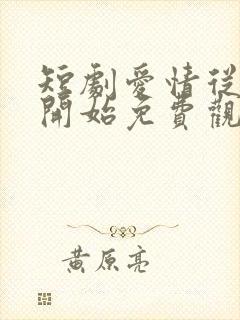 短劇愛情從
開始免費觀
黃原亮